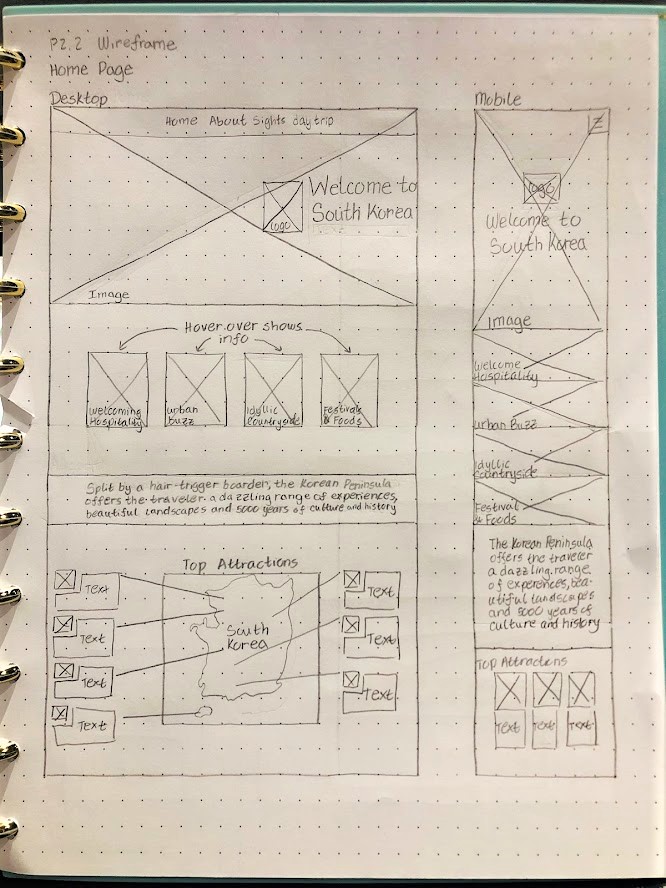 P2.2 Wireframe
Home Page
Desktop
Home About Sights day trip
logo
Welcome to
South Korea
Image
Hover over shows
info
Welcoming
Hospitality
Urban
Buzz
Idyllic
Countryside
Festivals
& Foods
Split by a hair-trigger boarder, the Korean Peninsula
offers the traveler a dazzling range of experiences,
beautiful landscapes and 5000 years of culture and history
Top Attractions
Text
Text
Text
Text
South
Korea
Text
Text
Text
Mobile
logo
Welcome to
South Korea
Image
Welcome
Hospitality
Urban Buzz
Idyllic
Countryside
Festival
& Foods
The Korean Peninsula
offers the traveler
a dazzling range
of experences, bea-
utiful landscapes
and 5000 years of
culture and history
Top Attractions
Text
Text
Text